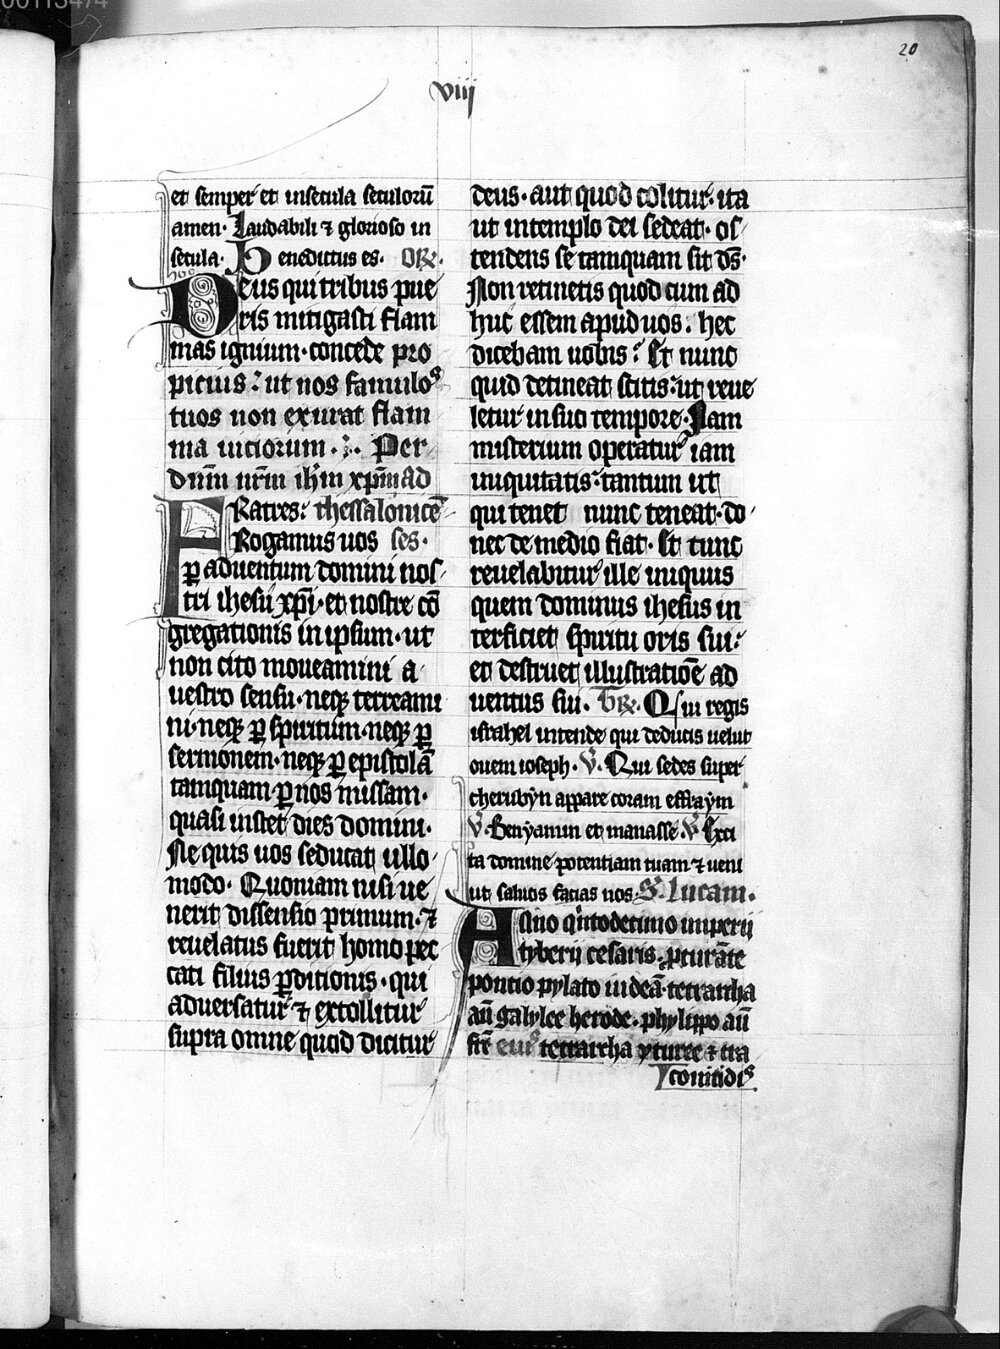 00113474
20
viij
et semper et insecula seculorū
amen· Laudabili ⁊ glorioso in
secula· Benedictus es. OR̄.
Deus qui tribus pue
ris mitigasti flam
mas ignium·concede pro
picius: ut nos famulos
tuos non exurat flam
ma uiciorum. Per
dnm̄ nr̄m ihm̄ xpm̄ Ad
Fratres: thessalonicē
Rogamus uos
ꝑ aduentum domini nos
tri ihesu xp̄i·et nostre cō
gregationis in ipsum·ut
non cito moueamini a
uestro sensu·neqꝫ terreami
ni·neqꝫ ꝑ spiritum·neqꝫ ꝑ
sermonem·neqꝫ ꝑ epistolā
tamquam ꝑ nos missam·
quasi instet dies domini·
Ne quis uos seducat ullo
modo· Quoniam nisi ue
nerit dissensio primum·⁊
reuelatus fuerit homo pec
cati filius ꝑditionis·qui
aduersatur ⁊ extollitur
supra omne quod dicitur
deus·aut quod colitur·ita
ut intemplo dei sedeat·os
tendens se tamquam sit ds̄·
Non retinetis quod cum ad
huc essem apud uos: hec
dicebam uobis? Et nunc
quid detineat scitis:ut reue
letur in suo tempore·Nam
misterium operatur iam
iniquitatis:tantum ut
qui tenet nunc teneat·do
nec de medio fiat· Et tunc
reuelabitur ille iniquus
quem dominus ihesus in
terficiet spiritu oris sui:
et destruet illustratiōe ad
uentus sui. Qui regis
israhel intende qui deducis uelut
ouem ioseph· V̄· Qui sedes super
cherubyn appare coram effraym
V̄·Benyamin et manasse V̄ Exci
ta domine potentiam tuam ⁊ ueni
ut saluos facias nos· S. Lucam.
Anno qͥntodecimo imperii
tyberij cesaris·ꝓcurāte
poncio pylato iudeā·tetrarcha
aū galylee herode·phylippo aū
fr̄e eius tetrarcha yturee ⁊ tra
conitidis